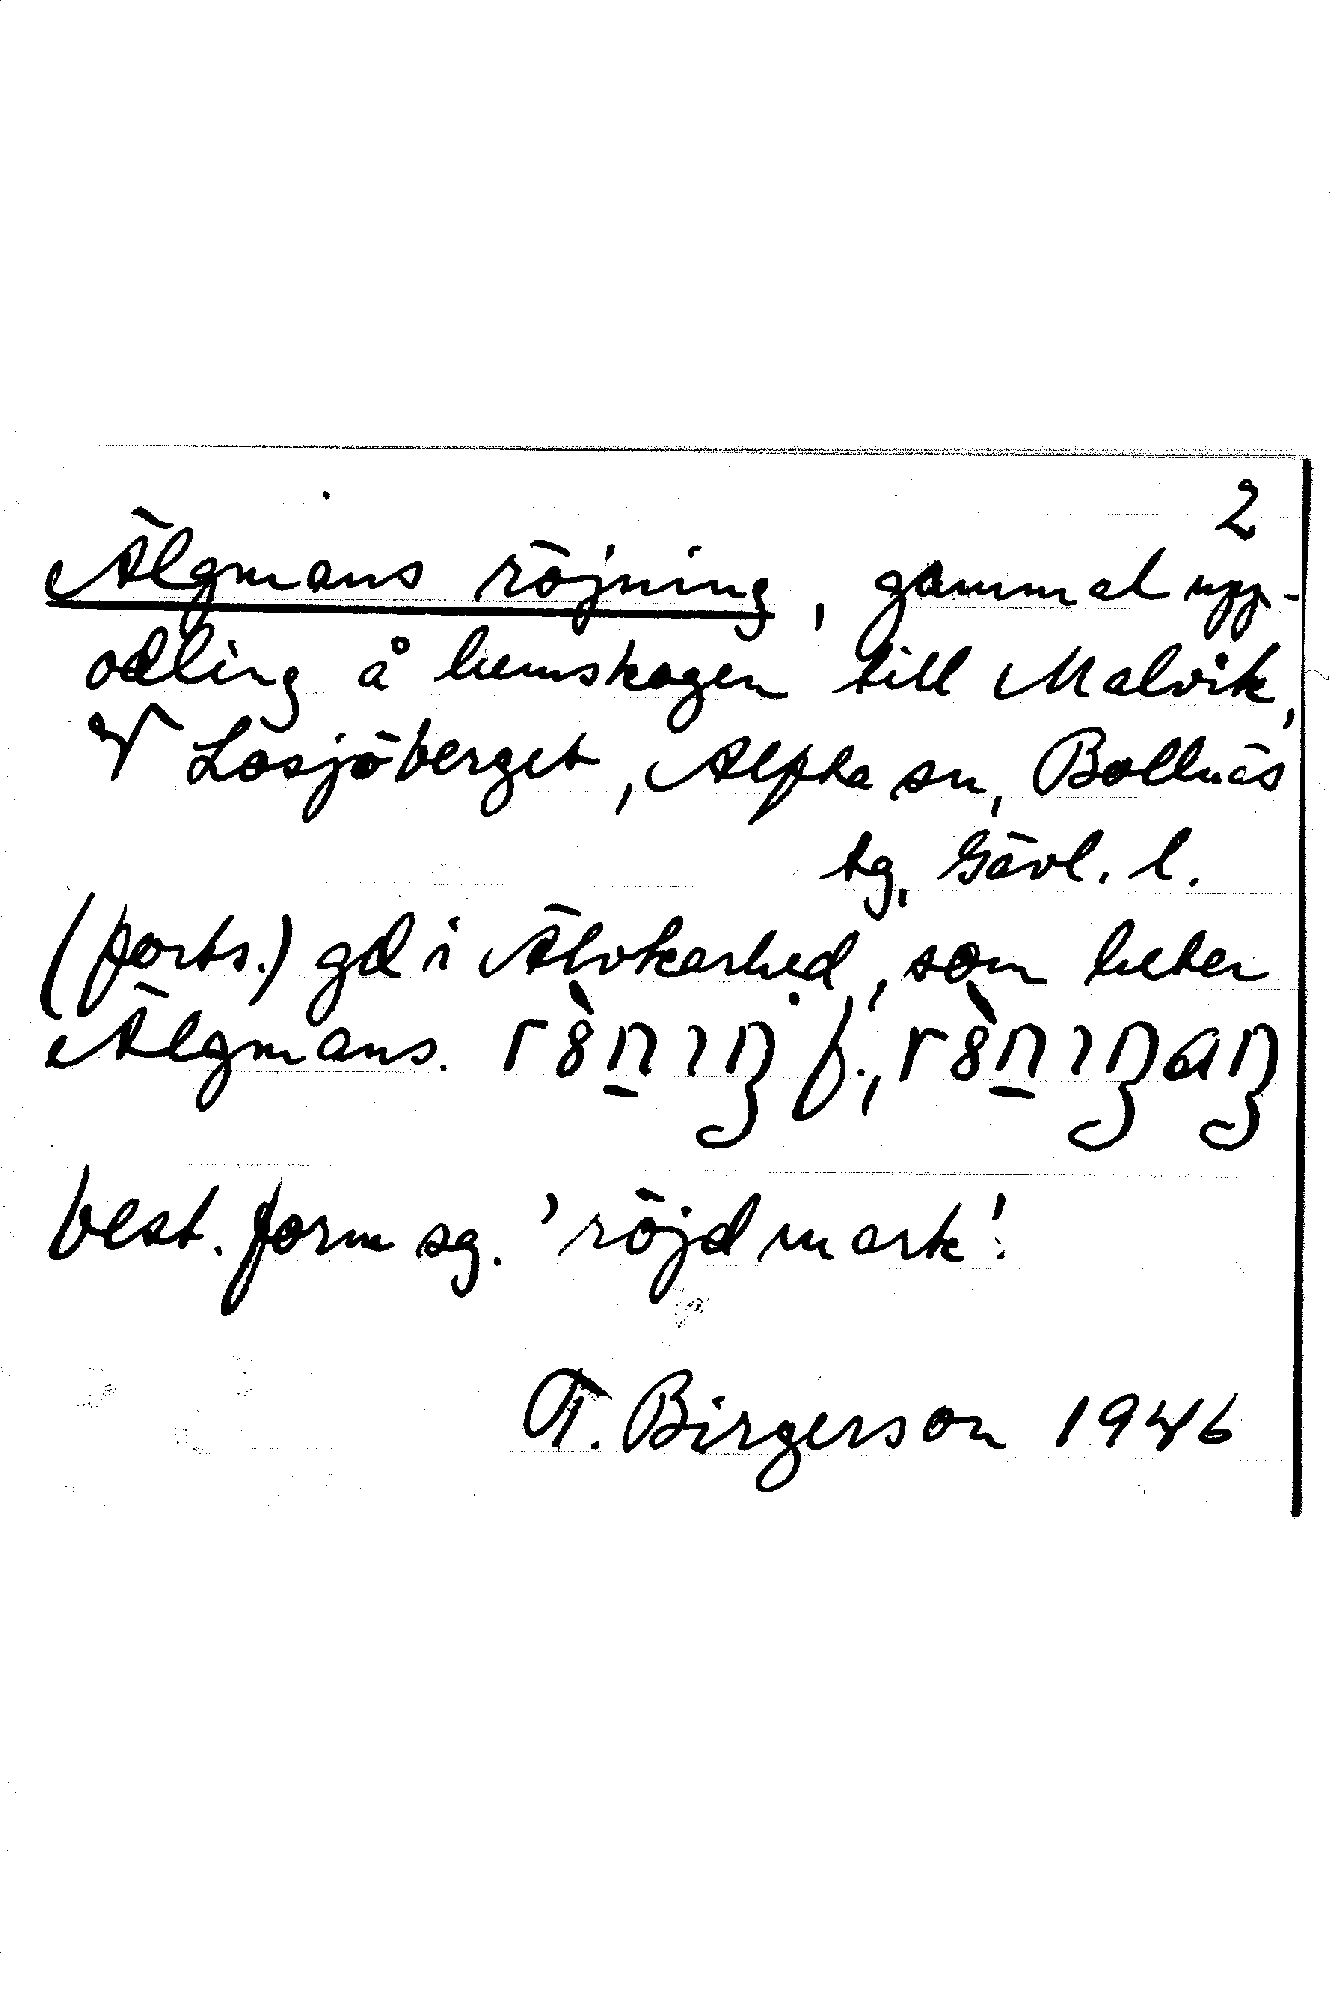 2
Älgmans röjning, gammal upp-
odling å hemskogen till Malvik,
V Losjöberget, Alfta sn, Bollnäs
tg, Gävl. l.
(forts.) gd i Älvkarhed, som heter
Älgmans.
best. form sg. 'röjd mark'.
T. Birgerson 1946